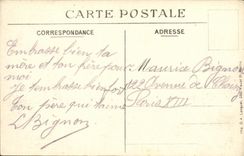 CARTE POSTALE
CORRESPONDANCE
ADRESSE
Embrasse bien ta
mère et ton père pour
moi
Je t'embrasse bien fort
Ton père qui t'aime
L Bignon
Maurice Bignon
122 Avenue de
Paris XIII